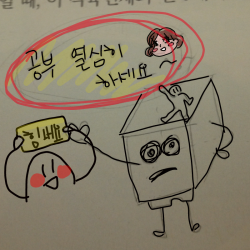 공부 열심히
하세요
힘내요